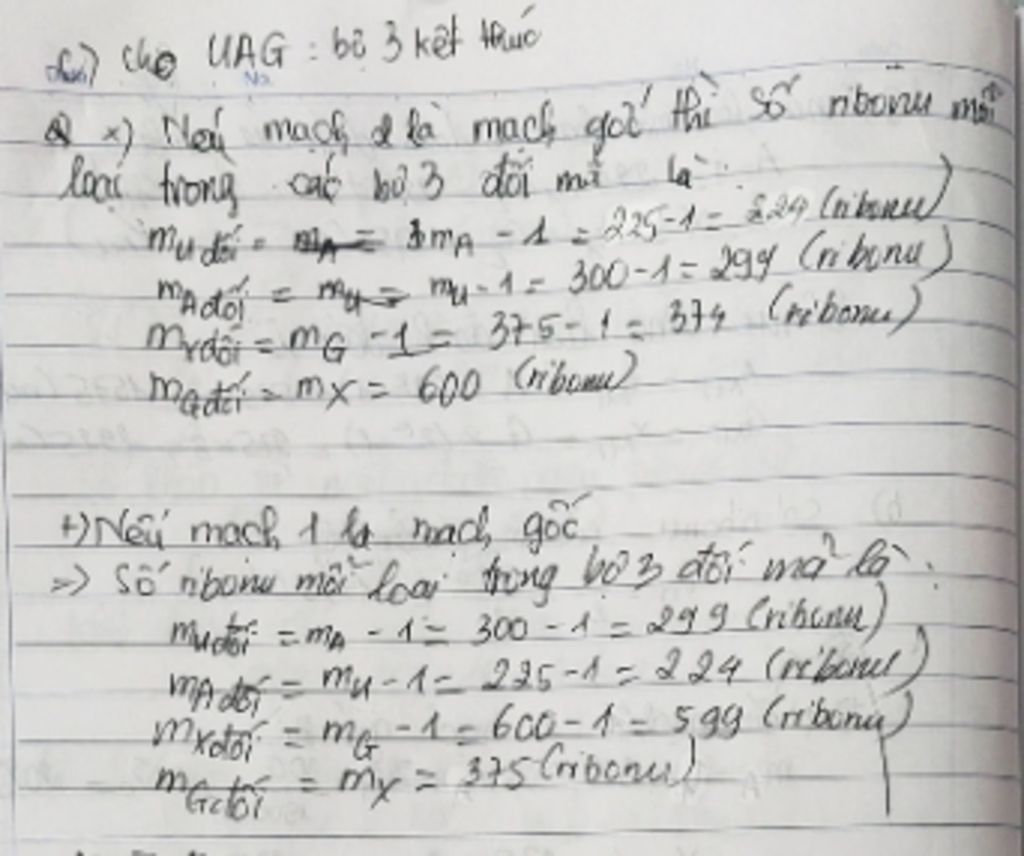 cho UAG : bộ 3 kết thúc
x) Nếu mạch 2 là mạch gốc thì số ribonu mỗi
loại trong các bộ 3 đối mã là :
mU đối = mA = mA - 1 = 225-1 = 224 (ribonu)
mA đối = mU = mU - 1 = 300-1 = 299 (ribonu)
mX đối = mG - 1 = 375 - 1 = 374 (ribonu)
mG đối = mX = 600 (ribonu)
+) Nếu mạch 1 là mạch gốc
=> Số ribonu mỗi loại trong bộ 3 đối mã là :
mU đối = mA - 1 = 300 - 1 = 299 (ribonu)
mA đối = mU - 1 = 225 - 1 = 224 (ribonu)
mX đối = mG - 1 = 600 - 1 = 599 (ribonu)
mG đối = mX = 375 (ribonu)